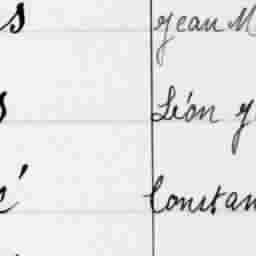 s Jean M
s Léon J
e' Constan